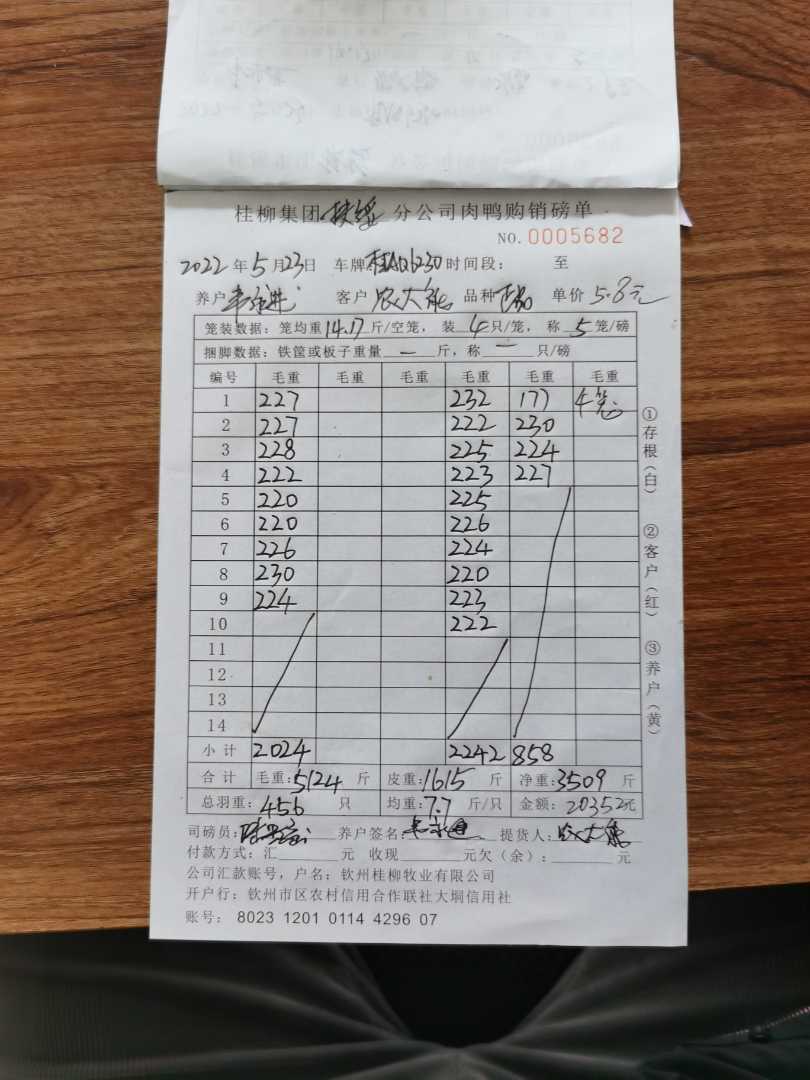 桂柳集团扶绥分公司肉鸭购销磅单
NO. 0005682
2022年5月23日 车牌桂 6230 时间段： 至
养户 客户农大能 品种 单价5.8元
笼装数据：笼均重14.17斤/空笼，装4只/笼，称5笼/磅
捆脚数据：铁筐或板子重量—斤，称—只/磅
编号 毛重 毛重 毛重 毛重 毛重 毛重
1 227 232 177 4笼
2 227 222 230
3 228 225 224
4 222 223 227
5 220 225
6 220 226
7 226 224
8 230 220
9 224 223
10 222
11
12
13
14
小计 2024 2242 858
合计 毛重：5124斤 皮重：1615斤 净重：3509斤
总羽重：456只 均重：7.7斤/只 金额：20352元
司磅员： 养户签名： 提货人：农大能
付款方式：汇 元 收现 元欠（余）： 元
公司汇款账号，户名：钦州桂柳牧业有限公司
开户行：钦州市区农村信用合作联社大垌信用社
账号： 8023 1201 0114 4296 07
①存根（白） ②客户（红） ③养户（黄）